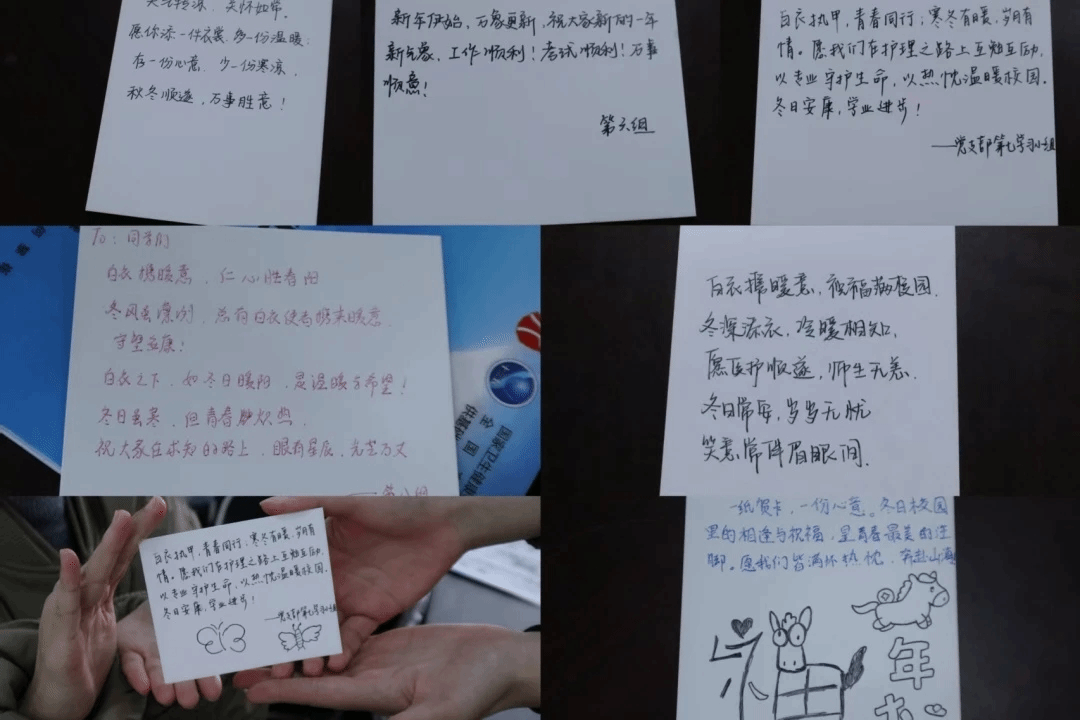 天气转凉，关怀如常。
愿你添一件衣裳，多一份温暖；
存一份心意，少一份寒凉，
秋冬顺遂，万事胜意！
新年伊始，万象更新，祝大家新的一年
新气象，工作顺利！考试顺利！万事
顺意！
第六组
白衣执甲，青春同行；寒冬有暖，岁月有
情。愿我们在护理之路上互勉互励，
以专业守护生命，以热忱温暖校园。
冬日安康，学业进步！
——党支部第七学习小组
To：同学们
白衣携暖意，仁心胜春阳
冬风虽凛冽，总有白衣使者携来暖意，
守望安康！
白衣之下，如冬日暖阳，是温暖与希望！
冬日虽寒，但青春炽热，
祝大家在求知的路上，眼有星辰，光芒万丈
国家卫生健康
白衣携暖意，祝福满校园，
冬深添衣，冷暖相知，
愿医护顺遂，师生无恙，
冬日常安，岁岁无忧
笑意常伴眉眼间。
白衣执甲，青春同行；寒冬有暖，岁月有
情。愿我们在护理之路上互勉互励，
以专业守护生命，以热忱温暖校园。
冬日安康，学业进步！
——党支部第七学习小组
一纸贺卡，一份心意。冬日校园
里的相逢与祝福，是青春最美的注
脚。愿我们皆满怀热忱，奔赴山海
年